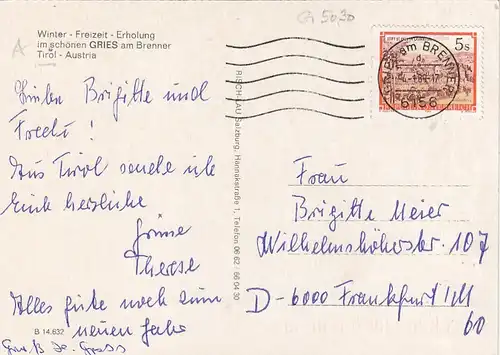 G 5030
A
Winter - Freizeit - Erholung
im schönen GRIES am Brenner
Tirol - Austria
Lieben Brigitte und
Fredi!
Aus Tirol sende ich
Euch herzliche
Grüsse
Therese
Alles gute noch zum
neuen Jahr
B 14.632
RISCHLAU Salzburg, Hannakstraße 1, Telefon 06 62
5s
GRIES am BRENNER
6156
Frau
Brigitte Meier
Wilhelmshöherstr. 107
D-6000 Frankfurt/M
60